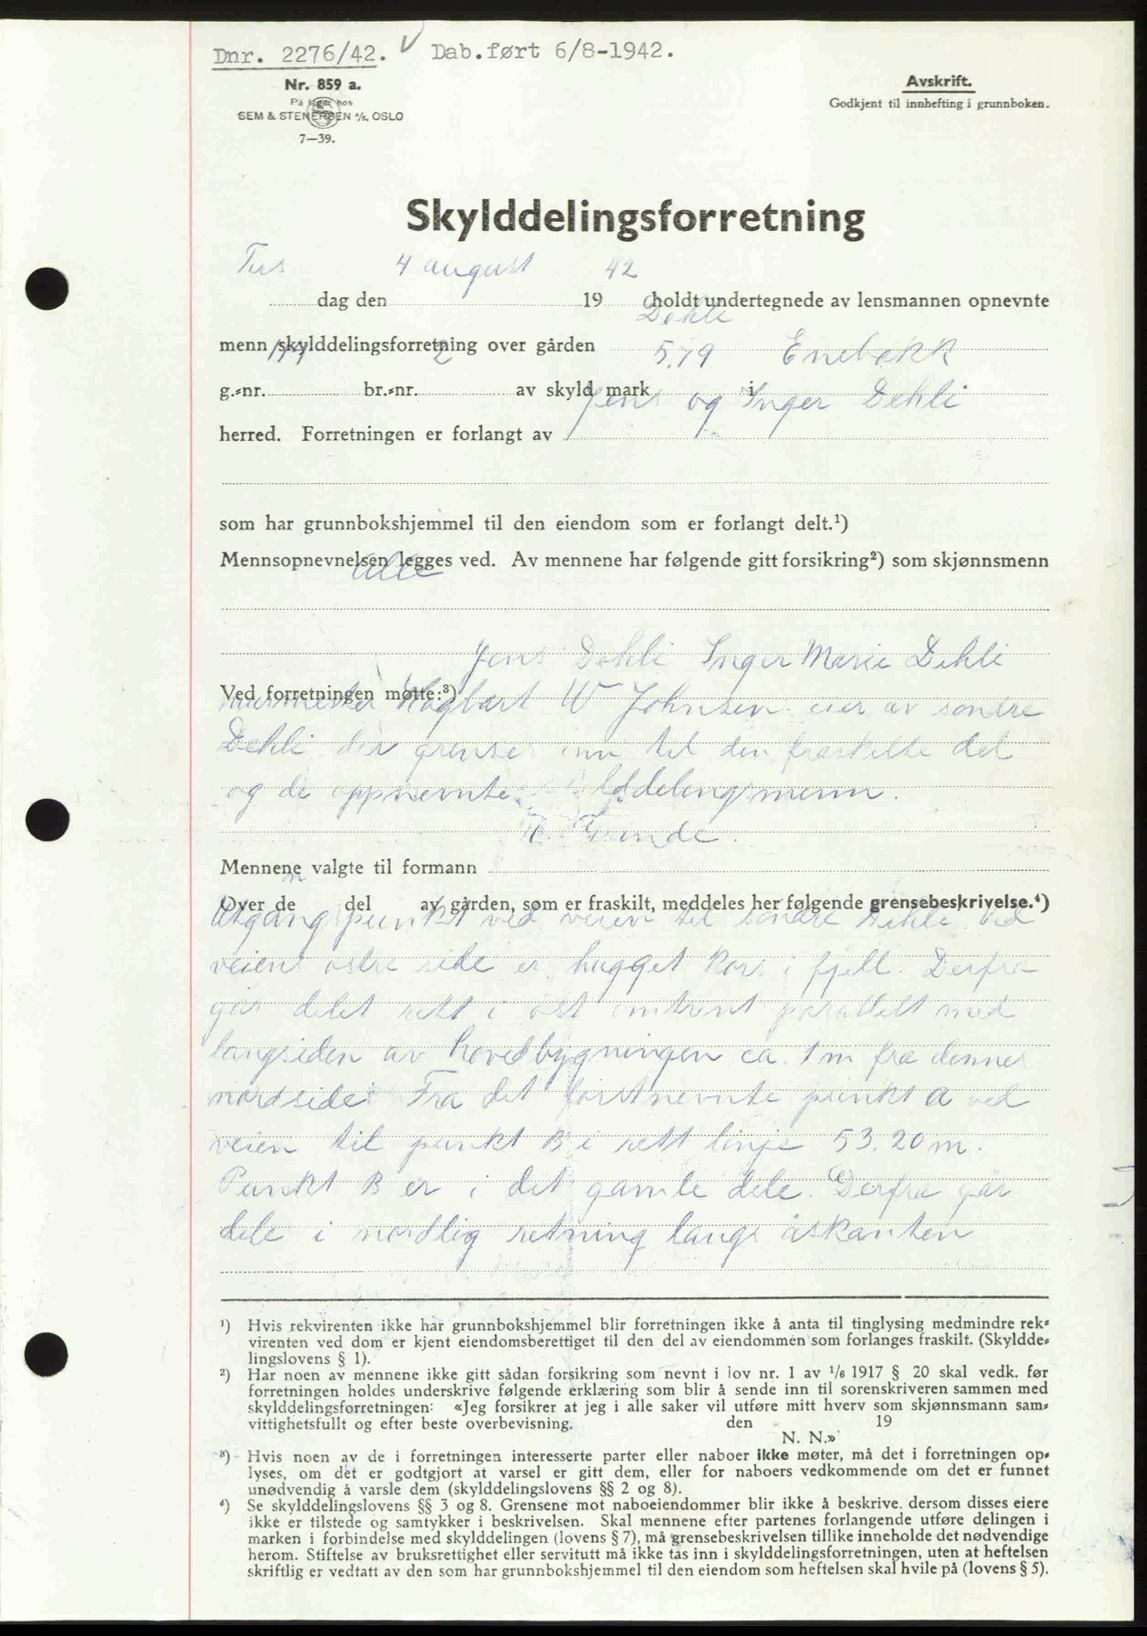 Dnr. 2276/42. Dab.ført 6/8-1942.
Nr. 859 a.
På lager hos
SEM & STENERSEN A/S, OSLO
7—39.
Avskrift.
Godkjent til innhefting i grunnboken.
Skylddelingsforretning
Tirs dag den 4 august 19 42 holdt undertegnede av lensmannen opnevnte
menn skylddelingsforretning over gården Dehli
g.-nr. br.-nr. 2 av skyld mark 5.79 i Enebakk
herred. Forretningen er forlangt av Jens og Inger Dehli
som har grunnbokshjemmel til den eiendom som er forlangt delt.¹)
Mennsopnevnelsen legges ved. Av mennene har følgende gitt forsikring²) som skjønnsmenn
Alle
Ved forretningen møtte:³) Jens Dehli Inger Marie Dehli
Hagbart W Johnsen eier av søndre
Dehli der grenser inn til den fraskilte del
og de oppnevnte skylddelingsmenn.
Mennene valgte til formann
Over de n del av gården, som er fraskilt, meddeles her følgende grensebeskrivelse.⁴)
Utgangspunkt ved veien til søndre Dehli. Ved
veiens østre side er hugget kors i fjell. Derfra
går delet rett i øst omtrent parallelt med
langsiden av hovedbygningen ca. 1 m fra dennes
nordside. Fra det førstnevnte punkt A ved
veien til punkt B i rett linje 53.20 m.
Punkt B er i det gamle dele. Derfra går
dele i nordlig retning langs åskanten
¹) Hvis rekvirenten ikke har grunnbokshjemmel blir forretningen ikke å anta til tinglysing medmindre rek-
virenten ved dom er kjent eiendomsberettiget til den del av eiendommen som forlanges fraskilt. (Skyldde-
lingslovens § 1).
²) Har noen av mennene ikke gitt sådan forsikring som nevnt i lov nr. 1 av 1/6 1917 § 20 skal vedk. før
forretningen holdes underskrive følgende erklæring som blir å sende inn til sorenskriveren sammen med
skylddelingsforretningen: «Jeg forsikrer at jeg i alle saker vil utføre mitt hverv som skjønnsmann sam-
vittighetsfullt og efter beste overbevisning. den 19
N. N.»
³) Hvis noen av de i forretningen interesserte parter eller naboer ikke møter, må det i forretningen op-
lyses, om det er godtgjort at varsel er gitt dem, eller for naboers vedkommende om det er funnet
unødvendig å varsle dem (skylddelingslovens §§ 2 og 8).
⁴) Se skylddelingslovens §§ 3 og 8. Grensene mot naboeiendommer blir ikke å beskrive, dersom disses eiere
ikke er tilstede og samtykker i beskrivelsen. Skal mennene efter partenes forlangende utføre delingen i
marken i forbindelse med skylddelingen (lovens § 7), må grensebeskrivelsen tillike inneholde det nødvendige
herom. Stiftelse av bruksrettighet eller servitutt må ikke tas inn i skylddelingsforretningen, uten at heftelsen
skriftlig er vedtatt av den som har grunnbokshjemmel til den eiendom som heftelsen skal hvile på (lovens § 5).